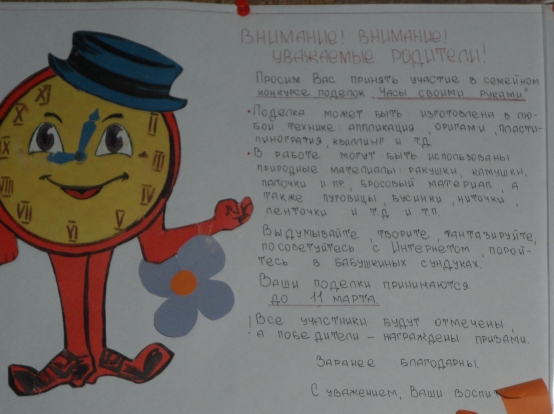 ВНИМАНИЕ! ВНИМАНИЕ!
УВАЖАЕМЫЕ РОДИТЕЛИ!
Просим Вас принять участие в семейном
конкурсе поделок "Часы своими руками"
• Поделка может быть изготовлена в лю-
бой технике: аппликация, оригами, пласти-
линография, квиллинг и т.д.
• В работе могут быть использованы
природные материалы: ракушки, камушки,
палочки и пр., бросовый материал, а
также пуговицы, бусинки, ниточки,
ленточки и т.д. и т.п.
Выдумывайте, творите, фантазируйте,
посоветуйтесь с Интернетом, порой-
тесь в бабушкиных сундуках.
Ваши поделки принимаются
до 11 марта
! Все участники будут отмечены,
а победители - награждены призами.
Заранее благодарны.
С уважением, Ваши
XI
I
II
III
IV
V
VI
VII
VIII
IX